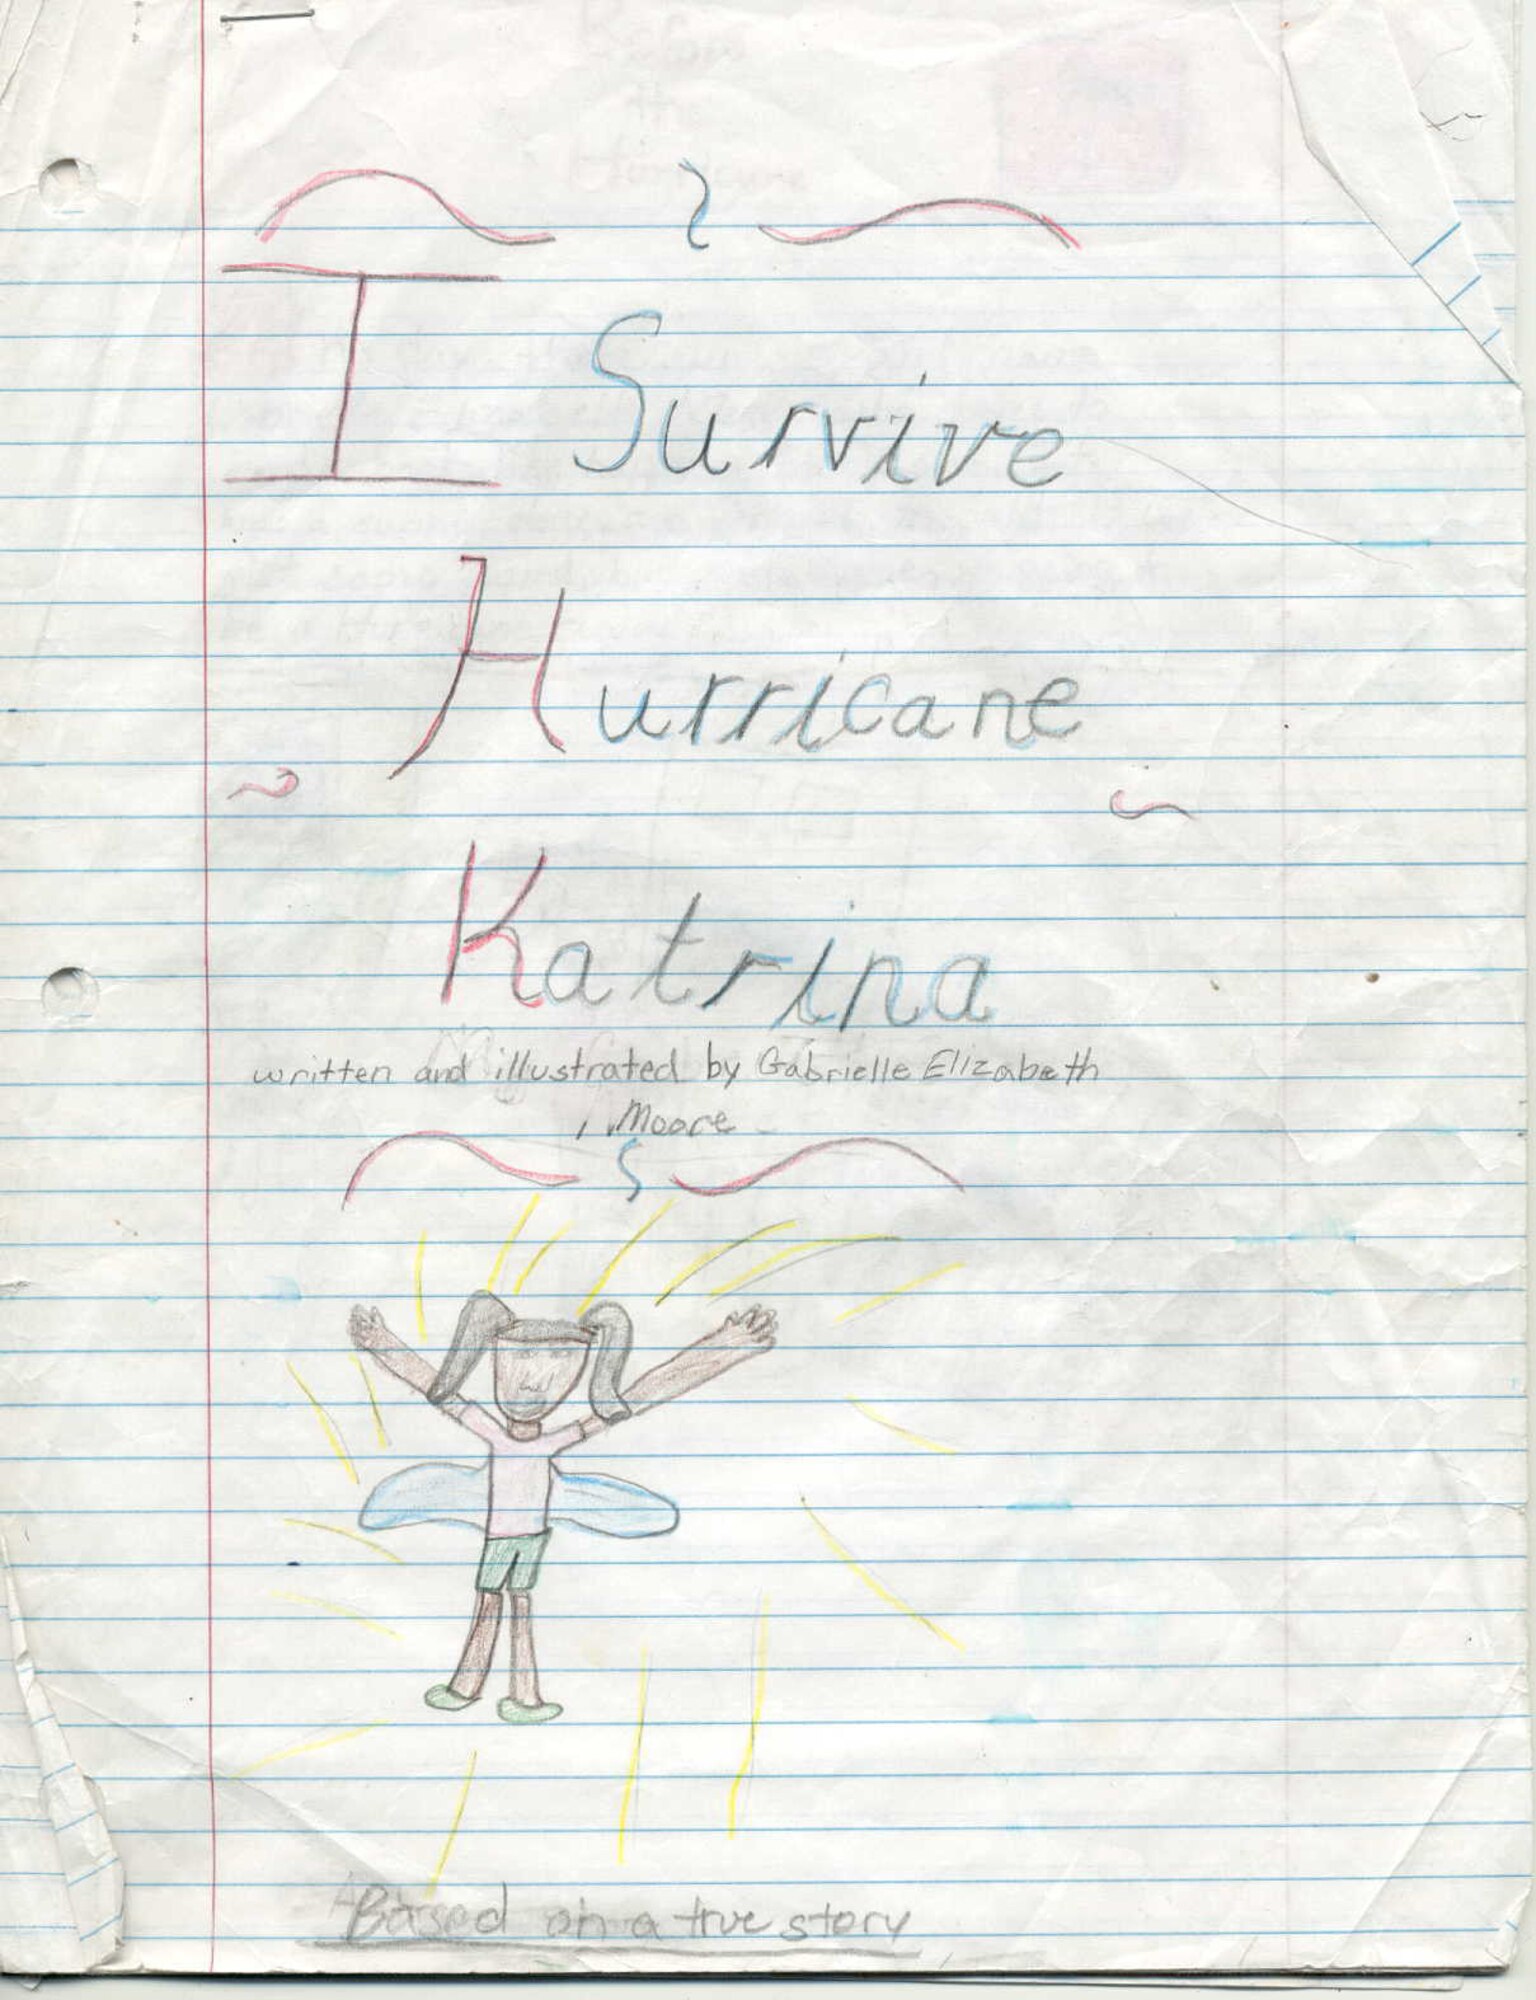 I Survive
Hurricane
Katrina
written and illustrated by Gabrielle Elizabeth
Moore
Based on a true story